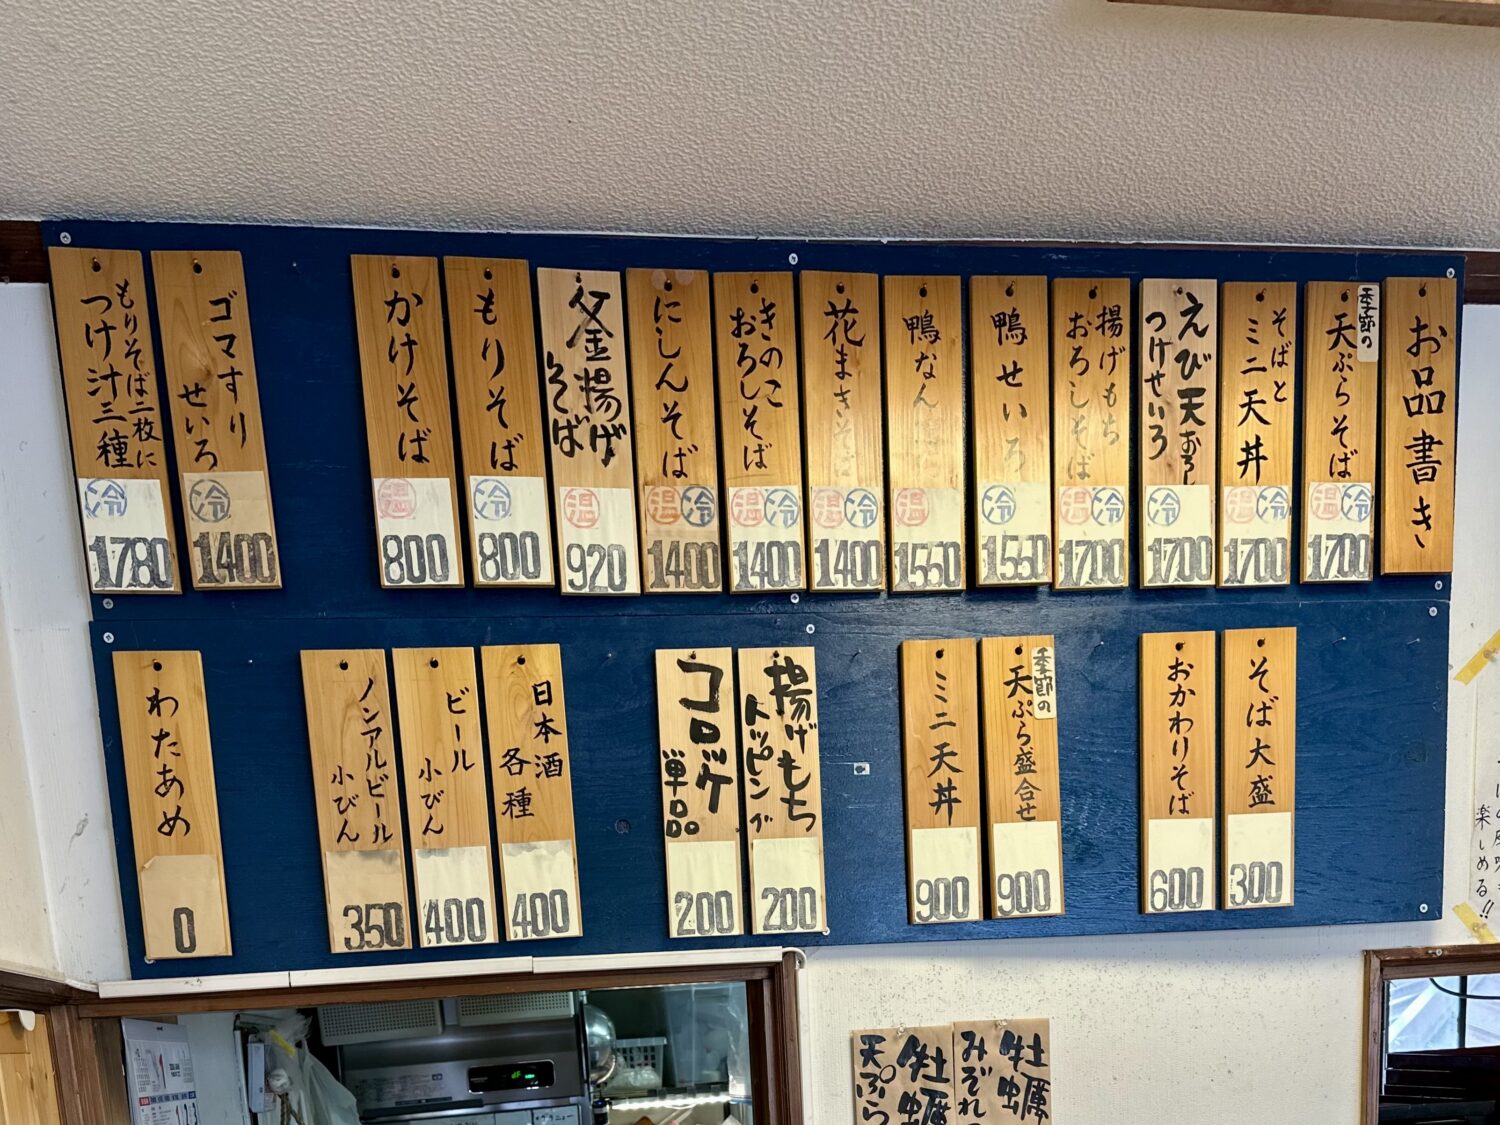 お品書き
季節の
天ぷらそば
温 冷
1700
そばと
ミニ天丼
温 冷
1700
えび天おろし
つけせいろ
冷
1700
揚げもち
おろしそば
温 冷
1700
鴨せいろ
冷
1550
鴨なん
温
1550
花まきそば
温 冷
1400
きのこ
おろしそば
温 冷
1400
にしんそば
温 冷
1400
釜揚げ
そば
温
920
もりそば
冷
800
かけそば
温
800
ゴマすり
せいろ
冷
1400
もりそば二枚に
つけ汁三種
冷
1780
そば大盛
300
おかわりそば
600
季節の
天ぷら盛合せ
900
ミニ天丼
900
揚げもち
トッピング
200
コロッケ
単品
200
日本酒
各種
400
ビール
小びん
400
ノンアルビール
小びん
350
わたあめ
0
楽しめる!!
牡蠣
みぞれ
牡蠣
天ぷら